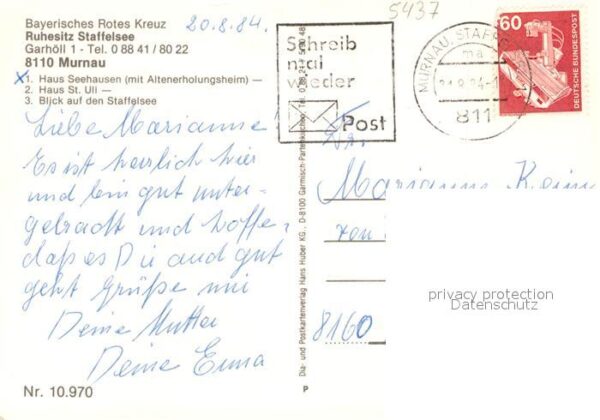 Bayerisches Rotes Kreuz
Ruhesitz Staffelsee
Garhöll 1 - Tel. 0 88 41 / 80 22
8110 Murnau
x1. Haus Seehausen (mit Altenerholungsheim) —
2. Haus St. Uli —
3. Blick auf den Staffelsee
20.8.84.
5437
Schreib
mal
wieder
Post
MURNAU, STAFF
ma
21.8.84-1
811
60
DEUTSCHE BUNDESPOST
Liebe Marianne!
Es ist herrlich hier
und bin gut unter-
gebracht und hoffe
daß es Dir auch gut
geht Grüße mir
Deine Mutter
Deine Erna
Nr. 10.970
Dia- und Postkartenverlag Hans Huber KG., D-8100 Garmisch-Partenkirchen, Tel. 0 88 21 /
P
Marianne
von
8160
privacy protection
Datenschutz